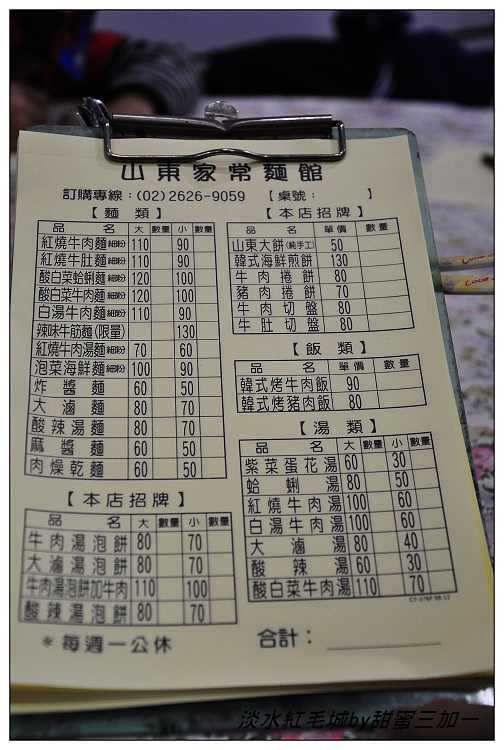 山東家常麵館
訂購專線：(02)2626-9059 【桌號： 】
【麵類】
品名 大 數量 小 數量
紅燒牛肉麵 細粉 110 90
紅燒牛肚麵 細粉 110 90
酸白菜蛤蜊麵 細粉 120 100
酸白菜牛肉麵 細粉 120 100
白湯牛肉麵 細粉 110 90
辣味牛筋麵(限量) 130
紅燒牛肉湯麵 細粉 70 60
泡菜海鮮麵 細粉 100 90
炸醬麵 60 50
大滷麵 80 70
酸辣湯麵 80 70
麻醬麵 60 50
肉燥乾麵 60 50
【本店招牌】
品名 大 數量 小 數量
牛肉湯泡餅 80 70
大滷湯泡餅 80 70
牛肉湯泡餅加牛肉 110 100
酸辣湯泡餅 80 70
＊每週一公休
【本店招牌】
品名 單價 數量
山東大餅(純手工) 50
韓式海鮮煎餅 130
牛肉捲餅 80
豬肉捲餅 70
牛肉切盤 80
牛肚切盤 80
【飯類】
品名 單價 數量
韓式烤牛肉飯 90
韓式烤豬肉飯 80
【湯類】
品名 大 數量 小 數量
紫菜蛋花湯 60 30
蛤蜊湯 80 50
紅燒牛肉湯 100 60
白湯牛肉湯 100 60
大滷湯 80 40
酸辣湯 60 30
酸白菜牛肉湯 110 70
合計：
淡水紅毛城by甜蜜三加一